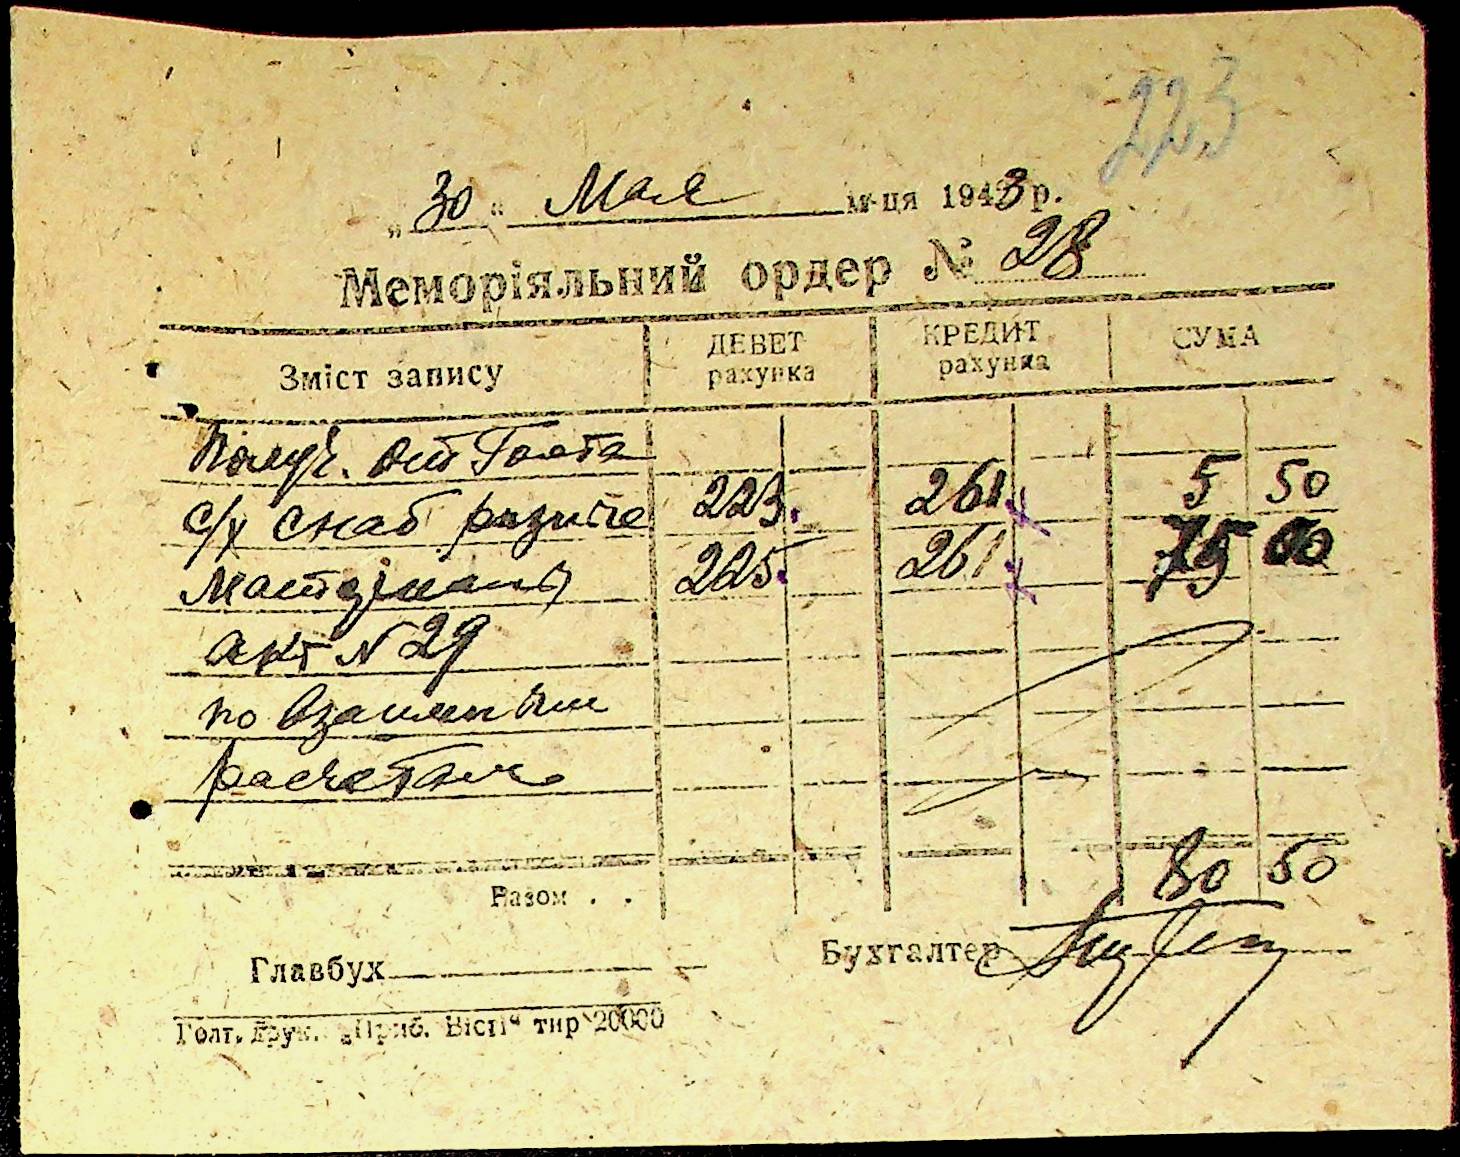 223
„30“ Мая м-ця 1943 р.
Меморіяльний ордер № 28
Зміст запису ДЕБЕТ рахунка КРЕДИТ рахунка СУМА
Получ. от Голта
с/х снаб разные 223. 261 5 50
материалы 225. 261 75 00
акт N 29
по взаимным
расчетам
Разом . . 80 50
Главбух Бухгалтер
Голт. друк. „Приб. Вісті“ тир 20000